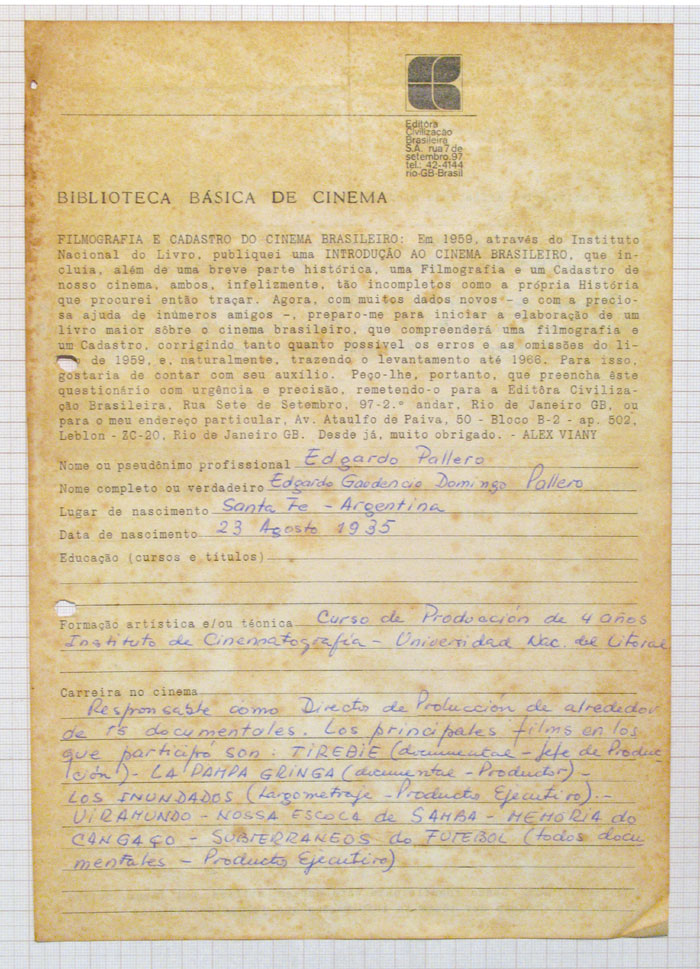 Editôra
Civilização
Brasileira
S.A. rua 7 de
setembro, 97
tel.: 42-4144
rio-GB-Brasil
BIBLIOTECA BÁSICA DE CINEMA
FILMOGRAFIA E CADASTRO DO CINEMA BRASILEIRO: Em 1959, através do Instituto
Nacional do Livro, publiquei uma INTRODUÇÃO AO CINEMA BRASILEIRO, que in-
cluia, além de uma breve parte histórica, uma Filmografia e um Cadastro de
nosso cinema, ambos, infelizmente, tão incompletos como a própria História
que procurei então traçar. Agora, com muitos dados novos - e com a precio-
sa ajuda de inúmeros amigos -, preparo-me para iniciar a elaboração de um
livro maior sôbre o cinema brasileiro, que compreenderá uma filmografia e
um Cadastro, corrigindo tanto quanto possível os erros e as omissões do li-
de 1959, e, naturalmente, trazendo o levantamento até 1966. Para isso,
gostaria de contar com seu auxílio. Peço-lhe, portanto, que preencha êste
questionário com urgência e precisão, remetendo-o para a Editôra Civiliza-
ção Brasileira, Rua Sete de Setembro, 97-2.º andar, Rio de Janeiro GB, ou
para o meu endereço particular, Av. Ataulfo de Paiva, 50 - Bloco B-2 - ap. 502,
Leblon - ZC-20, Rio de Janeiro GB. Desde já, muito obrigado. - ALEX VIANY
Nome ou pseudônimo profissional Edgardo Pallero
Nome completo ou verdadeiro Edgardo Gaudencio Domingo Pallero
Lugar de nascimento Santa Fe - Argentina
Data de nascimento 23 Agosto 1935
Educação (cursos e títulos)
Formação artística e/ou técnica Curso de Producción de 4 años
Instituto de Cinematografía - Universidad Nac. del Litoral
Carreira no cinema
Responsable como Director de Producción de alrededor
de 15 documentales. Los principales films en los
que participó son: TIREDIE (documental - Jefe de Produc
ción) - LA PAMPA GRINGA (documental - Productor) -
LOS INUNDADOS (Largometraje - Producto Ejecutivo). -
VIRAMUNDO - NOSSA ESCOLA de SAMBA - MEMORIA do
CANGAÇO - SUBTERRANEOS do FUTEBOL (todos docu
mentales - Producto Ejecutivo)